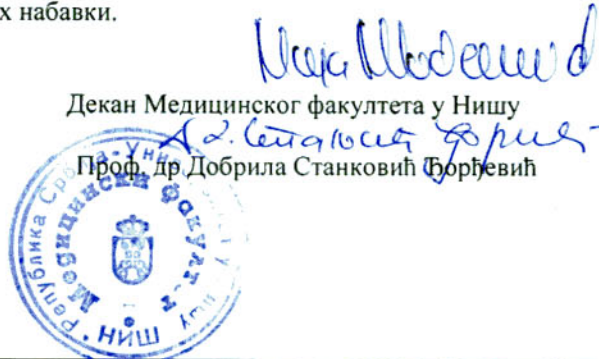 х набавки.
Декан Медицинског факултета у Нишу
Проф. др Добрила Станковић Ђорђевић
Република Србија-Универзитет у Нишу
Медицински факултет
НИШ